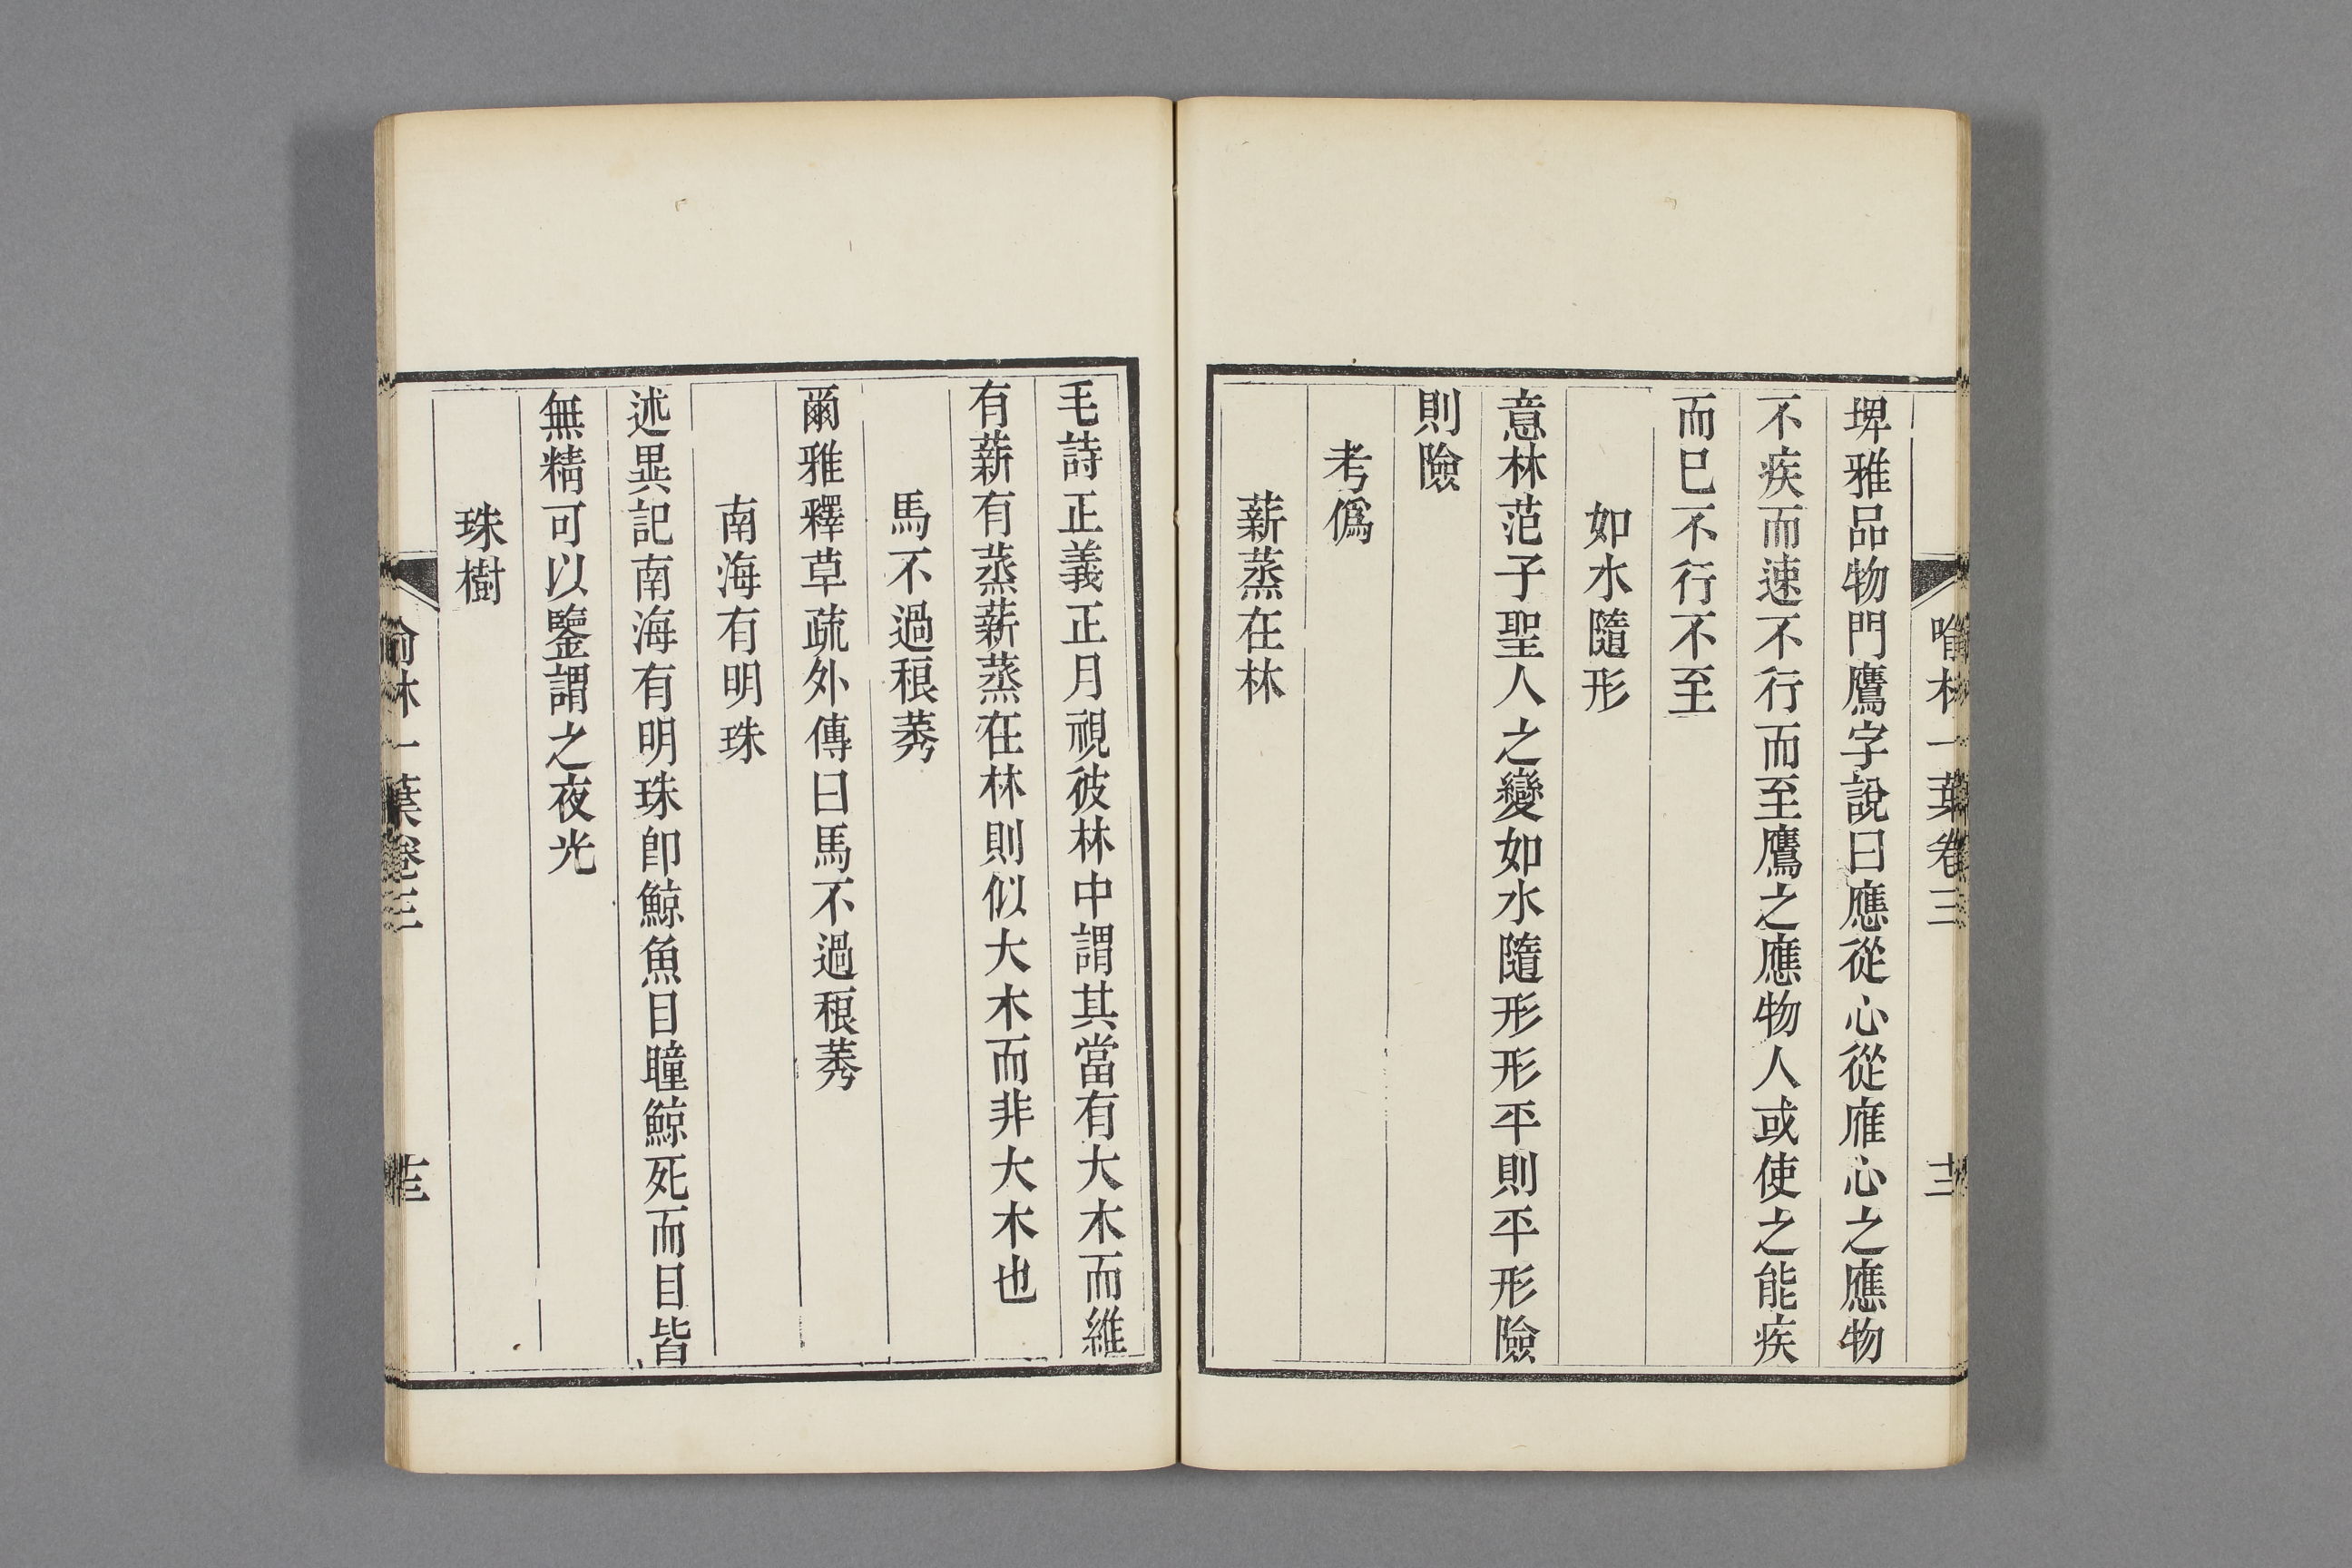 埤雅品物門鷹字說曰應從心從䧹心之應物
不疾而速不行而至鷹之應物人或使之能疾
而巳不行不至
如水隨形
意林范子聖人之變如水隨形形平則平形險
則險
考僞
薪蒸在林
毛詩正義正月視彼林中謂其當有大木而維
有薪有蒸薪蒸在林則似大木而非大木也
馬不過稂莠
爾雅釋草疏外傳曰馬不過稂莠
南海有明珠
述異記南海有明珠卽鯨魚目瞳鯨死而目皆
無精可以鑒謂之夜光
珠樹
喻林一葉卷三